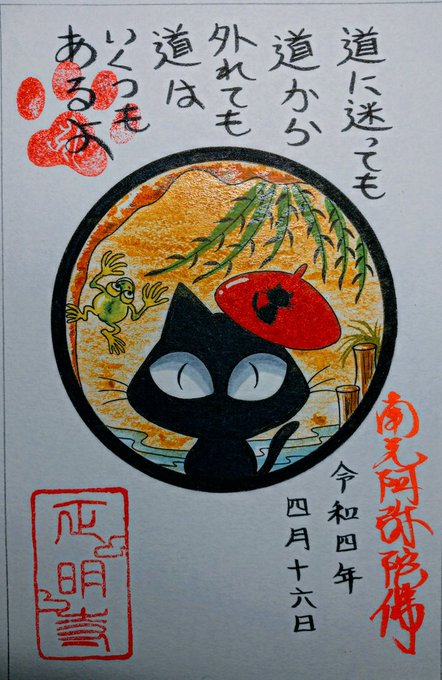 道に迷っても
道から
外れても
道は
いくつも
あるよ
南无阿弥陀佛
令和四年
四月十六日
正明寺